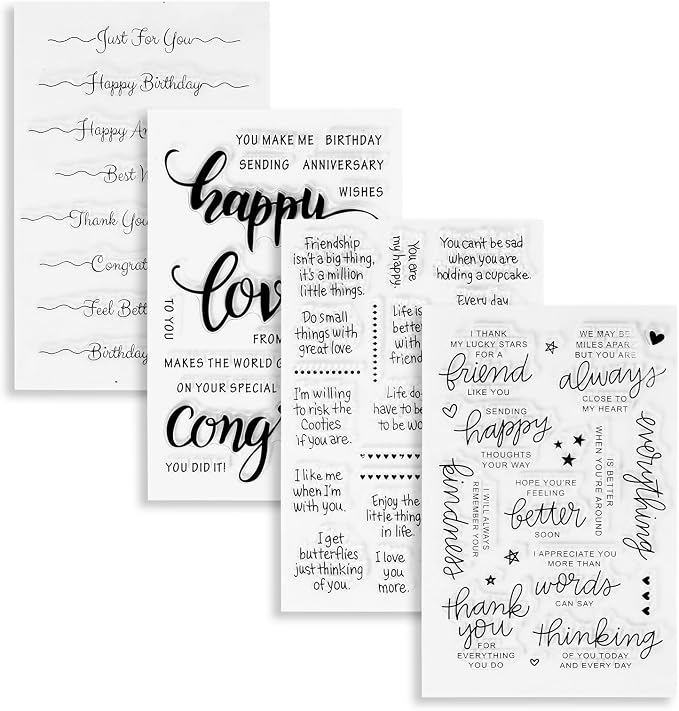 Just For You
Happy Birthday
Happy
Best
Thank You
Feel
Birthday
YOU MAKE ME BIRTHDAY
SENDING ANNIVERSARY
WISHES
happy
TO YOU
FROM
MAKES THE WORLD
ON YOUR SPECIAL
YOU DID IT!
Friendship
isn't a big thing,
it's a million
little things.
You are
my happy.
You can't be sad
when you are
holding a cupcake.
Every day
Do small
things with
great love
Life is
with
I'm willing
to risk the
Cooties
if you are.
Life
have to be
to be
I like me
when I'm
with you.
Enjoy the
little
in life.
I get
butterflies
just thinking
of you.
I love
you
more.
I THANK
MY LUCKY STARS
FOR A
friend
LIKE YOU
WE MAY BE
MILES APART
BUT YOU ARE
always
CLOSE TO
MY HEART
SENDING
happy
THOUGHTS
YOUR WAY
everything
IS BETTER
WHEN YOU'RE AROUND
kindness
I WILL ALWAYS
REMEMBER YOUR
HOPE YOU'RE
FEELING
better
SOON
I APPRECIATE YOU
MORE THAN
words
CAN SAY
thank
you
FOR
EVERYTHING
YOU DO
thinking
OF YOU TODAY
AND EVERY DAY